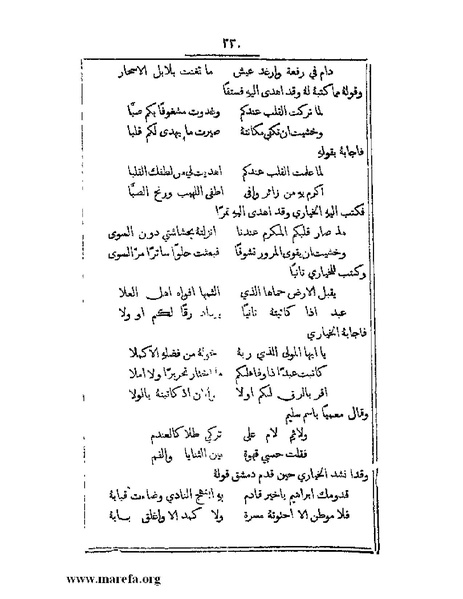 ٢٣٠
دام في رفعة وارغد عيش ما تغنت بلابل الاسحار
وقوله مما كتبة له وقد اهدى اليه فستقا
لما تركت القلب عندكم وغدوت مشغوفا بكم صبّا
وخشيت ان تكي مكانتة صيرت ما يهدى لكم قلبا
فاجابة بقوله
لما علمت القلب عندكم اهديت لي من لطفك القلبا
اكرم به من زائر وافى اطفى اللهيب ورنح الصبّا
فكتب اليه الخياري وقد اهدى اليه تمرًا
لما صار قلبكم المكرم عندنا انزلتة بحشاشتي دون السوى
وخشيت ان يقوى المرور تشوقًا فبعثت حلوًا ساترًا مرّ السوى
وكتب للخياري ثانيًا
يقبل الارض حماها الذي الثمها افواه اهل العلا
عبد اذا كاتبتة ثانيًا رقًا لكم او ولا
فاجابة الخياري
يا ايها المولى الذي ربة خولة من فضله الاكملا
كاتبت عبدًا ذا وفا علكم تحريرًا ولا املا
اقر بالرق لكم اولا اذ كاتبتة بالولا
وقال معميًا باسم سليم
ولائم لام على تركي طلا كالعندم
فقلت حسبي قهوة بين الثنايا والفم
وقد انشد الخياري حين قدم دمشق قولة
قدومك ابراهيم يا خير قادم بو ابتهج النادي وضاءت قبابة
فلا موطن الا احتوتة مسرة ولا كمد الا واغلق بابة
www.marefa.org